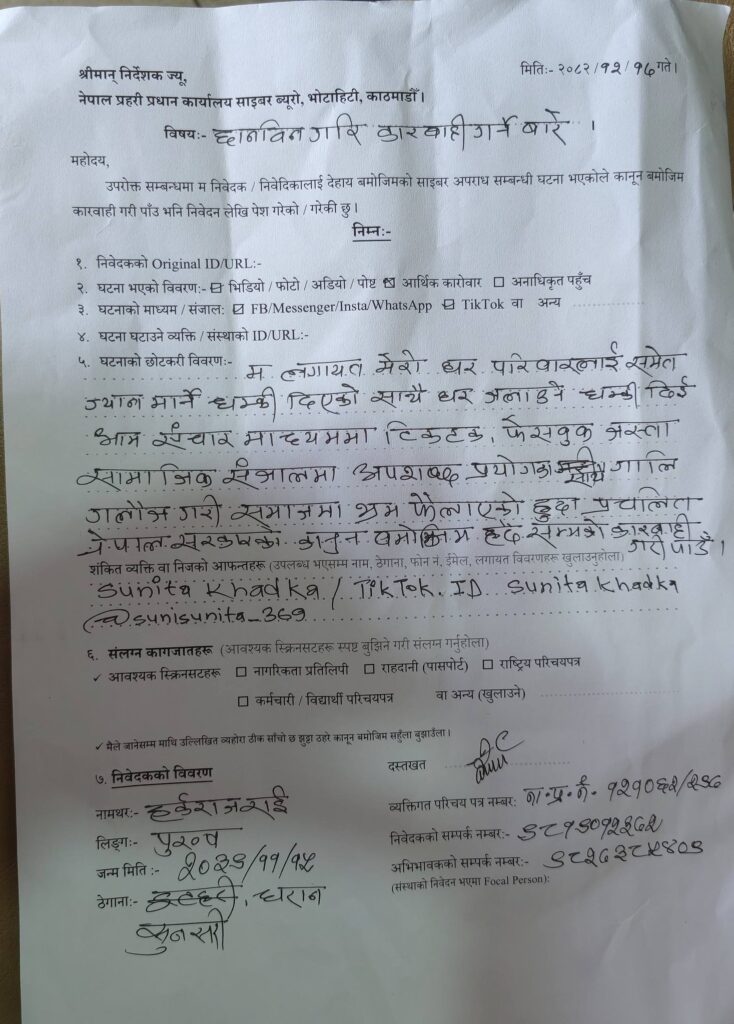 श्रीमान् निर्देशक ज्यू, मिति:- २०८२/१२/१८ गते।
नेपाल प्रहरी प्रधान कार्यालय साइबर ब्यूरो, भोटाहिटी, काठमाडौँ।
विषय:- छानविन गरि कारवाही गर्ने बारे ।
महोदय,
उपरोक्त सम्बन्धमा म निवेदक / निवेदिकालाई देहाय बमोजिमको साइबर अपराध सम्बन्धी घटना भएकोले कानून बमोजिम
कारवाही गरी पाउँ भनि निवेदन लेखि पेश गरेको / गरेकी छु।
निम्न:-
१. निवेदकको Original ID/URL:-
२. घटना भएको विवरण:- ☑ भिडियो / फोटो / अडियो / पोष्ट ☒ आर्थिक कारोवार ☐ अनाधिकृत पहुँच
३. घटनाको माध्यम / संजाल: ☑ FB/Messenger/Insta/WhatsApp ☑ TikTok वा अन्य
४. घटना घटाउने व्यक्ति / संस्थाको ID/URL:-
५. घटनाको छोटकरी विवरण:- म लगायत मेरो घर परिवारलाई समेत
ज्यान मार्ने धम्की दिएको साथै घर जलाउने धम्की दिई
आम संचार माध्यममा टिकटक, फेसवुक जस्ता
सामाजिक संजालमा अपशब्द प्रयोगका साथै गालि
गलौज गरी समाजमा भ्रम फैलाएको हुदा प्रचलित
नेपाल सरकारको कानुन वमोजिम हदै सम्मको कारवाही
गरी पाउँ।
शंकित व्यक्ति वा निजको आफन्तहरू (उपलब्ध भएसम्म नाम, ठेगाना, फोन नं, ईमेल, लगायत विवरणहरू खुलाउनुहोला)
Sunita Khadka / TikTok. ID Sunita Khadka
@sunisunita_369
६. संलग्न कागजातहरू (आवश्यक स्क्रिनसटहरू स्पष्ट बुझिने गरी संलग्न गर्नुहोला)
✓ आवश्यक स्क्रिनसटहरू ☐ नागरिकता प्रतिलिपी ☐ राहदानी (पासपोर्ट) ☐ राष्ट्रिय परिचयपत्र
☐ कर्मचारी / विद्यार्थी परिचयपत्र वा अन्य (खुलाउने)
✓ मैले जानेसम्म माथि उल्लिखित व्यहोरा ठीक साँचो छ झुट्ठा ठहरे कानून बमोजिम सहुँला बुझाउँला।
दस्तखत
७. निवेदकको विवरण
नामथर:- हर्कराज राई
व्यक्तिगत परिचय पत्र नम्बर: ना.प्र.नं.
लिङ्ग:- पुरुष
निवेदकको सम्पर्क नम्बर:-
जन्म मिति :-
अभिभावकको सम्पर्क नम्बर:-
(संस्थाको निवेदन भएमा Focal Person):
ठेगाना:- धरान
सुनसरी